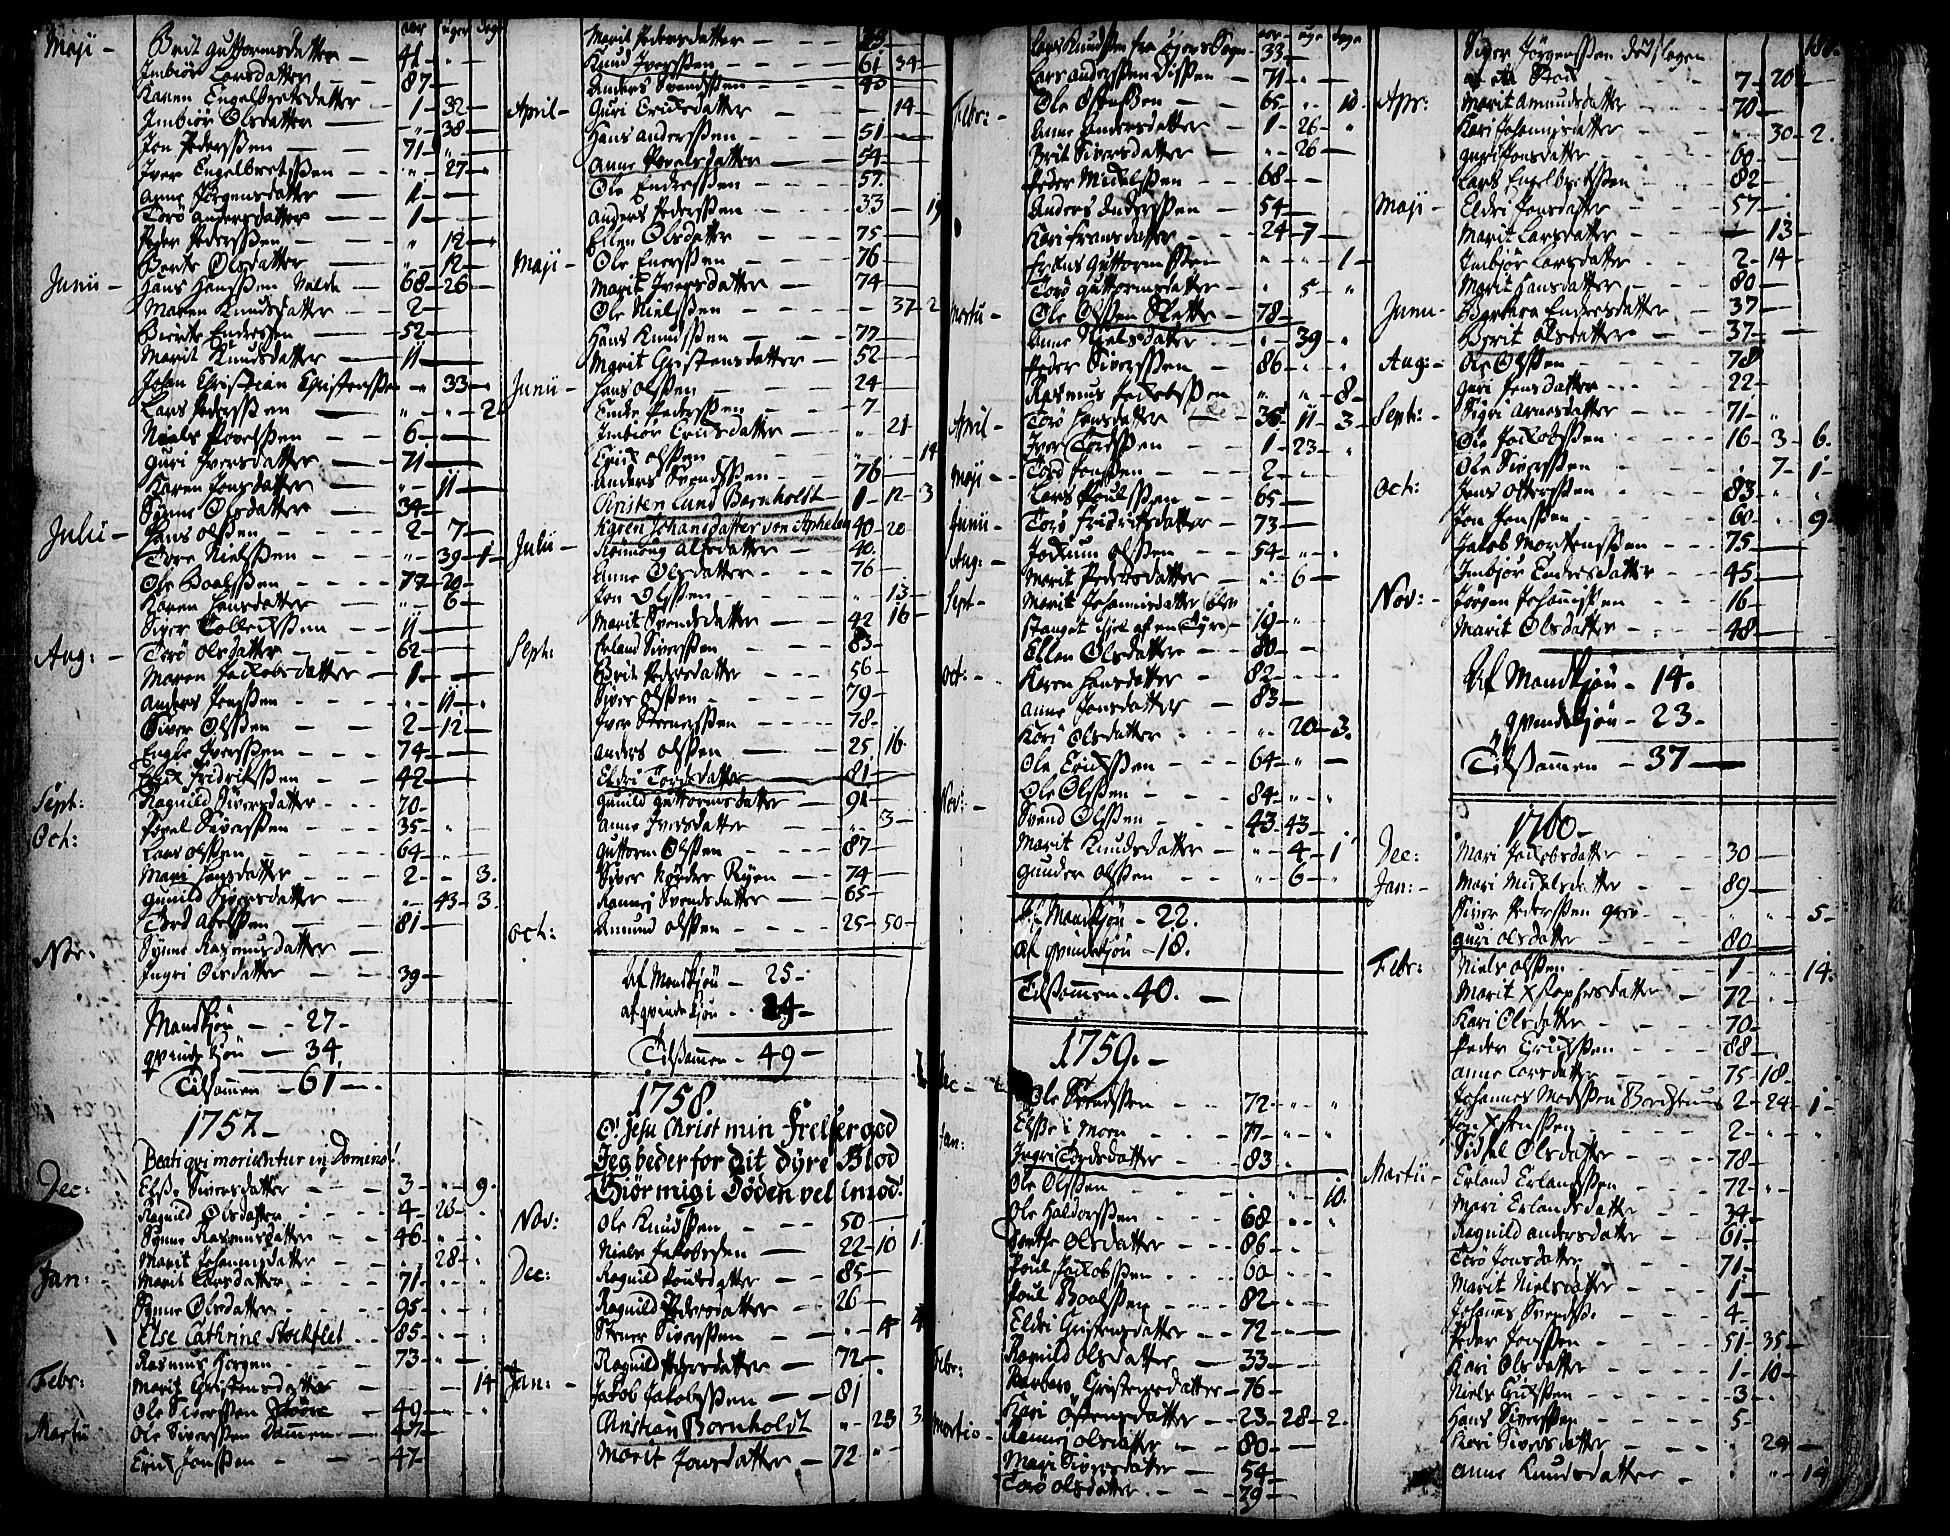 aar uger dage
Maji - Brit Guttormsdatter - 41 - " -
Imbiør Larsdatter - 87 -
Karen Engelbretsdatter - 1 - 32 -
Imbiør Olsdatter - " - 38 -
Jon Pederssen - 71 - " -
Iver Engelbretssen - " - 27 -
Anne Jørgensdatter - 1 -
Torø Andersdatter - 1 -
Peder Pederssen - " 12 -
Berte Olsdatter - " - 12 -
Junii - Hans Hanssen Valde - 68 - 26 -
Maren Knudsdatter - 2 -
Enderssen - 52 -
Marit Knudsdatter - 11 -
Johan Christian Christenssen - " 33 -
Lars Pederssen - " - " - 2
Niels Povelssen - 6 -
Guri Iversdatter - 71 -
Karen Jonsdatter - " - 11 -
Synne Olsdatter - 34 -
Julii - Hans Olssen - 2 - 7 -
Tore Nielssen - " - 39 - 1 -
Ole Boelssen - 77 - 20 -
Karen Hansdatter - " - 6 -
Siver Tollefssen - 11 -
Aug: - Torø Olsdatter - 62 -
Maren Jackobsdatter - 1 -
Anders Jonssen - " - 11 -
Siver Olssen - 2 - 12 -
Engle Iverssen - 74 -
Erick Fridrikssen - 42 -
Sept: Ragnild Siversdatter - 70 -
Och: Povel Siverssen - 35 - "
Lars Olssen - 64 -
Mari Hansdatter - 2 - " 3.
Gunild Siversdatter - " - 43 - 3.
Tord Abelssen - 81 -
Nov. Synne Rasmusdatter -
Ingri Olsdatter - 39 -
Mandkjøn - - 27 -
Qvindekjøn - 34.
Tilsammen - 61 -
1757 -
Beati qvi moriuntur in Domino!
Dec: Else Siversdatter - 3 - " 9.
Ragnild Olsdatter - 4 - 26 -
Synne Rasmusdatter - 46 -
Marit Johannisdatter - " 28 -
Jan: Marit Larsdatter - 71 -
Synne Olsdatter - 95 -
Else Cathrine Stockflet - 85 -
Rasmus Horgen - 73 -
Febr: Marit Christensdatter - 14
Ole Siverssen - 49 -
Martii Ole Siverssen - 47 -
Erick Jonssen - 47 -
Marit Pedersdatter -
Knud Iverssen - 61 34 -
Anders Svendssen - 40
April - Guri Ericksdatter - 14 -
Hans Anderssen - 51 -
Anne Povelsdatter - 54 -
Ole Enderssen - 57.
Anders Pederssen - 33 -
Ellen Olsdatter - 75 -
Maji - Ole Enerssen - 76 -
Marit Iversdatter - 74 -
Ole Nielssen - 37 - 2
Hans Knudssen - 77 -
Marit Christensdatter - 52
Junii - Hans Olssen - 24 -
Pederssen - 7 -
Imbiør Ericksdatter - " 21 -
Erick Olssen - 14
Anders Svendssen - 76 -
Christen Lund Bornholdt - 1 - 12 - 3
Karen Johansdatter von Aphelen 40 20
Julii - Rønnoug Alfsdatter - 40.
Anne Olsdatter - 76 -
Jon Olssen - " 13 -
Marit Svendsdatter - 42 16 -
Sept: Erland Siverssen - 83 -
Brit Pedersdatter - 56
Siver Olssen - 79 -
Iver Stenerssen - 78 -
Anders Olssen - 25 16
Eldri Tordsdatter - 81 -
Gunild Guttormsdatter - 91 -
Anne Iversdatter - " 3 -
Guttorm Olssen - 87 -
Siver Nørder Ryen - 74 -
Rannei Svendsdatter - 65 -
Och: Amund Olssen - 25 - 50 -
Af Mandkjøn - 25 -
af qvindekjøn - 24 -
Tilsammen - 49 -
1758.
O! Jesu Christ min Frelser god
Jeg beder for dit dyre Blod
Giør mig i Døden vel imod!
Nov: Ole Knudssen - 50 -
Niels Jakobssen - 22 - 10 1
Dec: Ragnild Poulsdatter - 85 -
Ragnild Pedersdatter - 26 -
Stener Siverssen - " - 4 4
Ragnild Pedersdatter - 72 -
Jan: - Jakob Jakobssen - 81
Christian Bornholdt - " 23 3
Marit Jonsdatter - 72 "
aar uge dage
Lars Knudssen fra Sogn - 33 -
Lars Anderssen - 71 - " -
Febr: - Ole - 65 - " 10.
Anne Andersdatter - 1 - 26 - "
Brit Siversdatter - " - 26 -
Peder Mickelssen - 68 -
Anders Anderssen - 54 -
Kari Fransdatter - 24 - 7 -
Guttormssen - 1 -
Torø Guttormsdatter - " 5 - "
Martii - Ole Olssen Slette - 78 -
Anne Nielsdatter - " 39 -
Peder Siverssen - 86 -
Rasmus Jackobssen " " 8 -
April - Torø Hansdatter - 36 - 11 - 3 -
Iver Tordssen - 1 - 23 -
Maji - Tord Jonssen - 2 -
Lars Poulssen - 65 -
Junii - Torø Fridrichsdatter - 73 -
Aug: - Jockum Olssen - 54 -
Marit Pedersdatter - " 6 -
Sept - Marit Johannisdatter blev
stanget ihjel af en Tyre - 19 -
Ellen Olsdatter - 80 -
oct: - Karen Hansdatter - 82 -
Anne Jonsdatter - 83 -
Kari Olsdatter - " 20 - 3.
Ole Erickssen - 64 -
Nov: - Ole Olssen - 84 -
Svend Olssen - 43 - 43 -
Marit Knudsdatter - " 4 - 1
Gunder Olssen - " 6 -
Af Mandkjøn - 22.
Af qvindekjøn - 18.
Tilsammen - 40. -
1759. -
Dec - Ole Svendssen - 72 -
Jan: Elsse i Moen - 77 -
Ingri Tordsdatter - 83.
Ole Olssen - 10.
Ole Haldorssen - 68 -
Berthe Olsdatter - 86 -
Poul Jackobssen - 60
Poul Boelssen - 82 -
Eldri Christensdatter - 72 -
Febr: Ragnild Olsdatter - 33 -
Barbero Christensdatter - 76 -
Kari Østensdatter - 23 - 28 - 2.
Martio - Rannei Olsdatter - 80 -
Mari Siversdatter - 54 -
Torø Olsdatter - 29 -
Siver Jørgenssen dødslagen
af en Stock - 7 - 20 -
Apr: Marit Amundsdatter - 70 -
Kari Johannisdatter - 30 - 2.
Guri Jonsdatter - 60 -
Lars Engelbretssen - 82 -
Maji - Eldri Jonsdatter - 57 -
Marit Larsdatter - 13 -
Imbjør Larsdatter - 2 - 14 -
Marit Hansdatter - 80 -
Junii - Barbara Endersdatter - 37 -
Berit Olsdatter - 37 -
Aug: - Ole Olssen - 78
Guri Jonsdatter - 22 -
Sept: - Sigri Arnesdatter - 71 -
Ole Jackobssen - 16 - 3 - 6.
Ole Siverssen - " 7 - 1 -
Oct: Jens Otterssen - 83 -
Jon Jonssen - 60 - " 9 -
Jakob Mortenssen - 75 -
Imbjør Endersdatter - 45 -
Nov: - Jørgen Johannissen - 16 -
Marit Olsdatter - 48 -
Af Mandkjøn - 14.
qvindekjøn - 23 -
Tilsammen - 37 -
1760 -
Dec: Mari Jackobsdatter - 30 -
Jan: - Mari Mickelsdatter - 89 -
Siver Pederssen - 5 -
Guri Olsdatter - 80
Febr: Niels Olssen - 1 - " 14.
Marit Xstophersdatter - 72 -
Kari Olsdatter - 70 -
Peder Erickssen - 88 -
Anne Larsdatter - 75 - 18.
Johannes Madssen Borchgrevink 2 - 24 - 1 -
Jon Xstenssen - 2 -
Sidsel Olsdatter - 78 -
Martii - Erland Erlandssen - 72 -
Mari Erlandsdatter - 34 -
Ragnild Andersdatter - 61 -
Torø Jonsdatter - 71 -
Marit Nielsdatter - 1 -
Johanes Svendss: - 4.
Peder Jonssen - 51 - 35 -
Kari Olsdatter - 1 - 10 -
Niels Erickssen - 3 -
Hans Siverssen - 5 -
Kari Siversdatter - " 24 -
Anne Knudsdatter - " 14